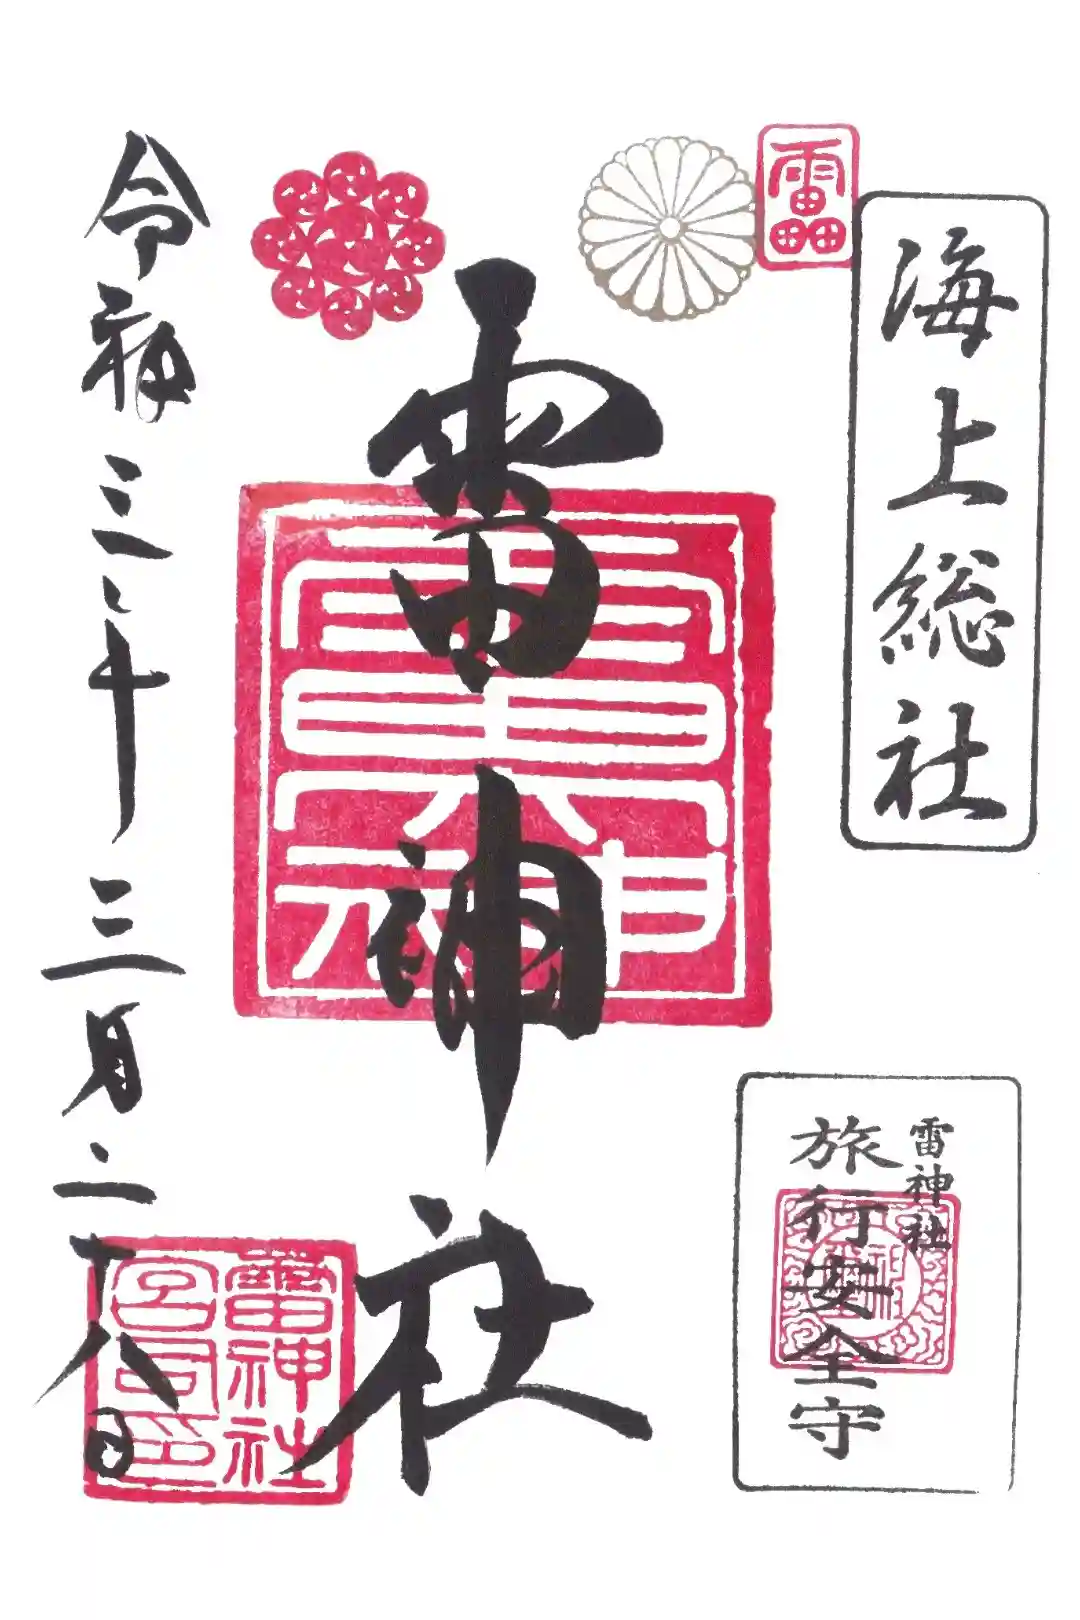 海上総社
雷神社
令和三年三月二十八日
雷神社
宮司印
雷神社
旅行安全守